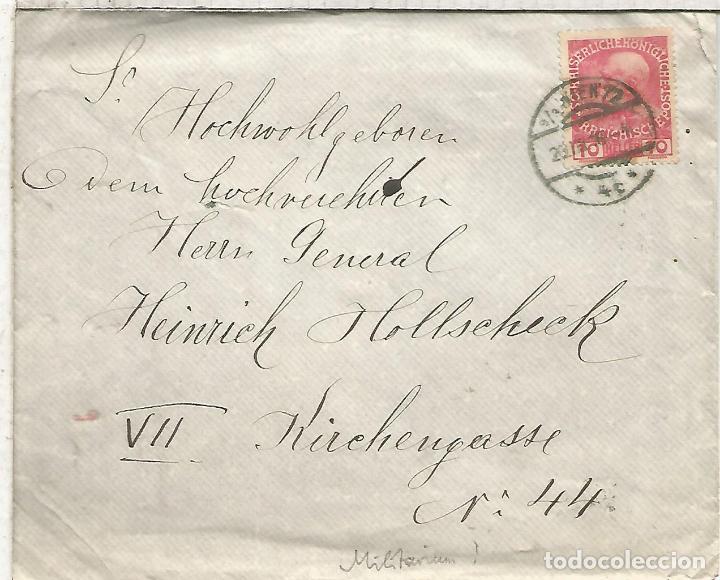 KAISERLICHEKÖNIGLICHE
ÖSTERREICHISCHE POST
10 HELLER 10
WIEN 72
* 4c *
Sr
Hochwohlgeboren
dem hochverehrten
Herrn General
Heinrich Hollscheck
VII Kirchengasse
Nr: 44
Militarium
todocoleccion